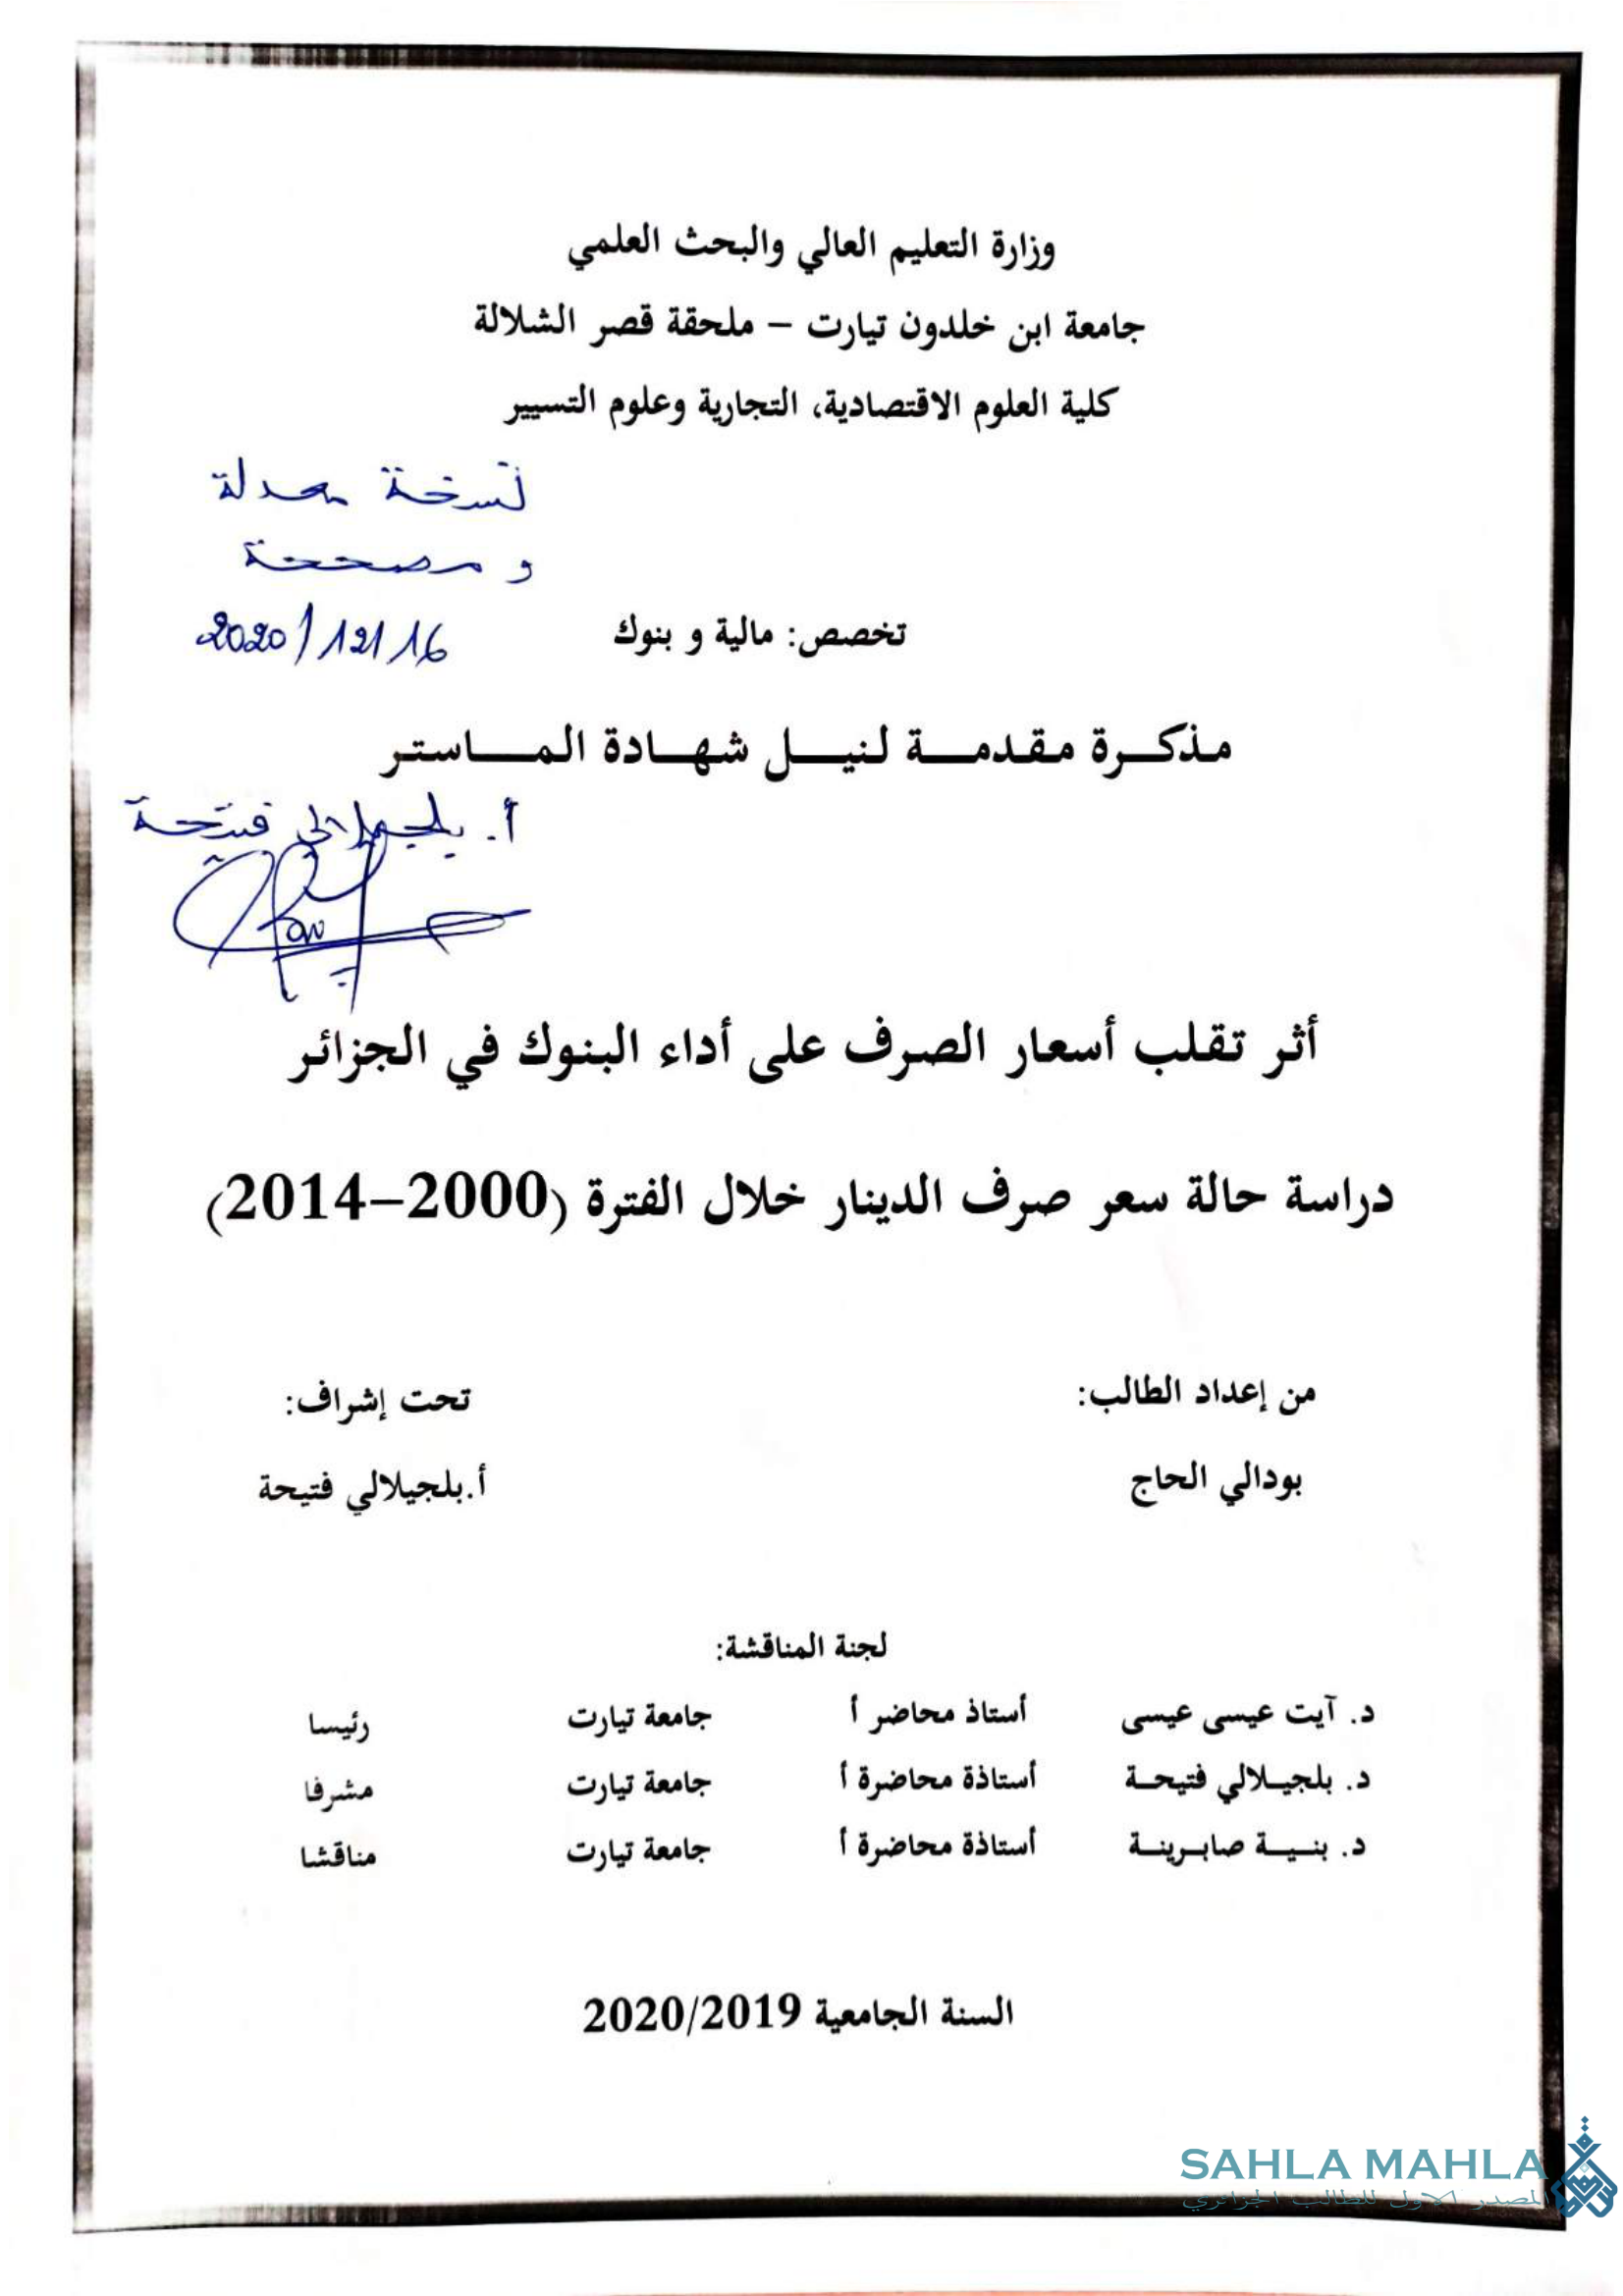 وزارة التعليم العالي والبحث العلمي
جامعة ابن خلدون تيارت – ملحقة قصر الشلالة
كلية العلوم الاقتصادية، التجارية وعلوم التسيير
نسخة معدلة
و مصححة
2020/12/16
تخصص: مالية و بنوك
مذكرة مقدمة لنيل شهادة الماستر
أ. بلجيلالي فتيحة
أثر تقلب أسعار الصرف على أداء البنوك في الجزائر
دراسة حالة سعر صرف الدينار خلال الفترة (2000–2014)
من إعداد الطالب: تحت إشراف:
بودالي الحاج أ.بلجيلالي فتيحة
لجنة المناقشة:
د. آيت عيسى عيسى أستاذ محاضر أ جامعة تيارت رئيسا
د. بلجيلالي فتيحة أستاذة محاضرة أ جامعة تيارت مشرفا
د. بنية صابرينة أستاذة محاضرة أ جامعة تيارت مناقشا
السنة الجامعية 2020/2019
SAHLA MAHLA
المصدر الاول للطالب الجزائري